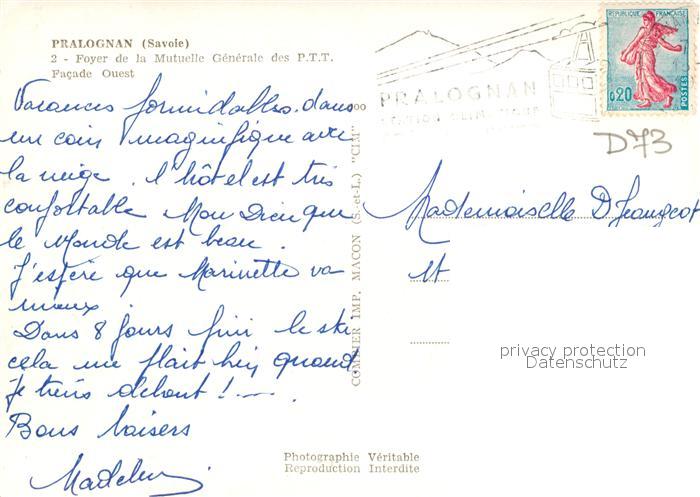 PRALOGNAN (Savoie)
2 - Foyer de la Mutuelle Générale des P.T.T.
Façade Ouest
Vacances formidables dans
un coin magnifique avec
la neige. l'hôtel est très
confortable Mon Dieu que
le Monde est beau.
J'espère que Marinette va
mieux.
Dans 8 jours fini le ski
cela me plait bien quand
je tiens debout !
Bons baisers
Madelein
COMBIER IMP. MACON (S.-et-L.) "CIM"
Photographie Véritable
Reproduction Interdite
PRALOGNAN
STATION CLIMATIQUE
REPUBLIQUE FRANÇAISE
0,20
POSTES
D73
Mademoiselle D Jeangeot
privacy protection
Datenschutz